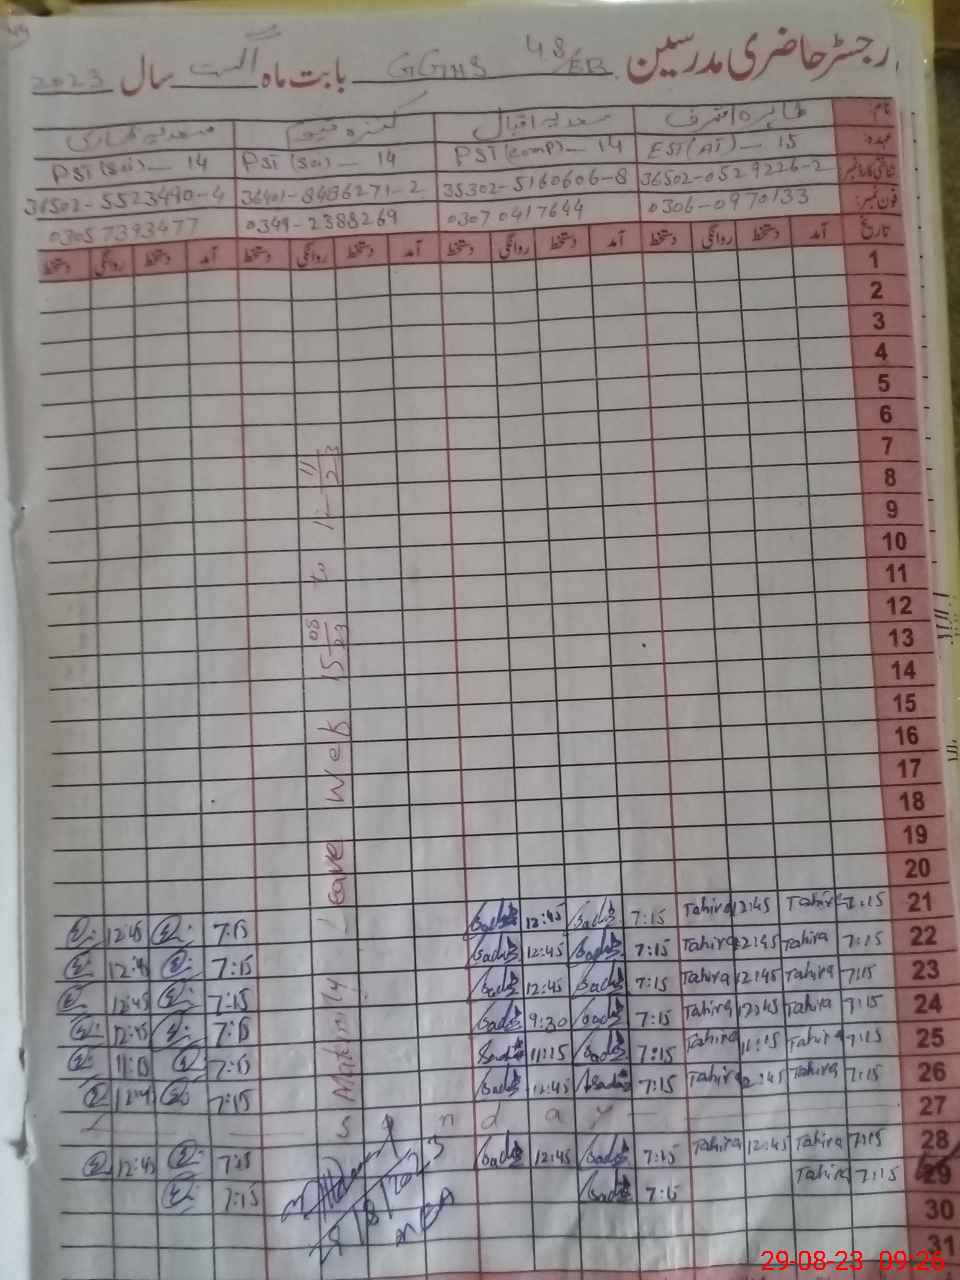 رجسٹر حاضری مدرسین GGHS 48/EB بابت ماہ اگست سال 2023
نام: طاہرہ اشرف سعدیہ اقبال کنزہ سعدیہ
عہدہ EST (AT) - 15 PST (comp) - 14 PST (Sci) - 14 PST (Sci) - 14
شناختی کارڈ نمبر 36502-0529226-2 35302-5160606-8 36401-8486271-2 36502-5523490-4
فون نمبر: 0306-0970133 03070417644 0349-2388269 03057393477
تاریخ آمد دستخط روانگی دستخط آمد دستخط روانگی دستخط آمد دستخط روانگی دستخط آمد دستخط روانگی دستخط
1
2
3
4
5
6
7
8
9
10
11
12
13
14
15
16
17
18
19
20
Maternity Leave Week 15-08-23 to 12-11-23
21 7:15 Tahira 12:45 Tahira 7:15 Sadia 12:45 Sadia 7:15 12:45
22 7:15 Tahira 12:45 Tahira 7:15 Sadia 12:45 Sadia 7:15 12:45
23 7:15 Tahira 12:45 Tahira 7:15 Sadia 12:45 Sadia 7:15 12:45
24 7:15 Tahira 12:45 Tahira 7:15 Sadia 9:30 Sadia 7:15 12:45
25 7:15 Tahira 11:15 Tahira 7:15 Sadia 11:15 Sadia 7:15 11:15
26 7:15 Tahira 12:45 Tahira 7:15 Sadia 12:45 Sadia 7:15 12:45
27 Sunday
28 7:15 Tahira 12:45 Tahira 7:15 Sadia 12:45 Sadia 7:15 12:45
29 7:15 Tahira 7:15 Sadia 7:15
30
31
MEA
29-08-23 09:26